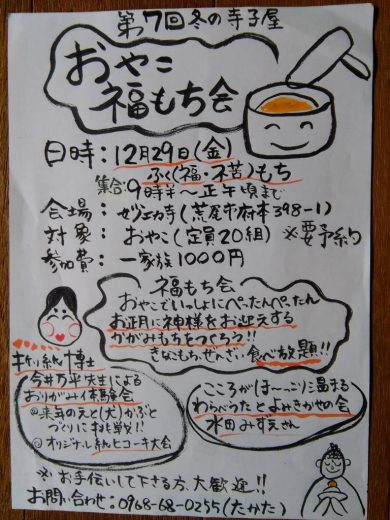 第7回冬の寺子屋
おやこ
福もち会
日時：12月29日(金)
ふく(福・不苦)もち
集合:9時半～正午頃まで
会場：ぜソエカ寺(荒尾市府本398-1)
対象：おやこ(定員20組) ※要予約
参加費：一家族1000円
福もち会
おやこでいっしょにぺったんぺったん
お正月に神様をお迎えする
かがみもちをつくろう!!
きなこもち、ぜんざい、食べ放題!!
折り紙博士
今井万平先生による
おりがみ体験会
@来年のえと(犬)かぶと
づくりに挑戦!!
@オリジナル紙ヒコーキ大会
こころがほ～っこり温まる
わらべうたとよみきかせの会
水田みずえさん
※お手伝いして下さる方、大歓迎!!
お問い合わせ：0968-68-0255(たかた)